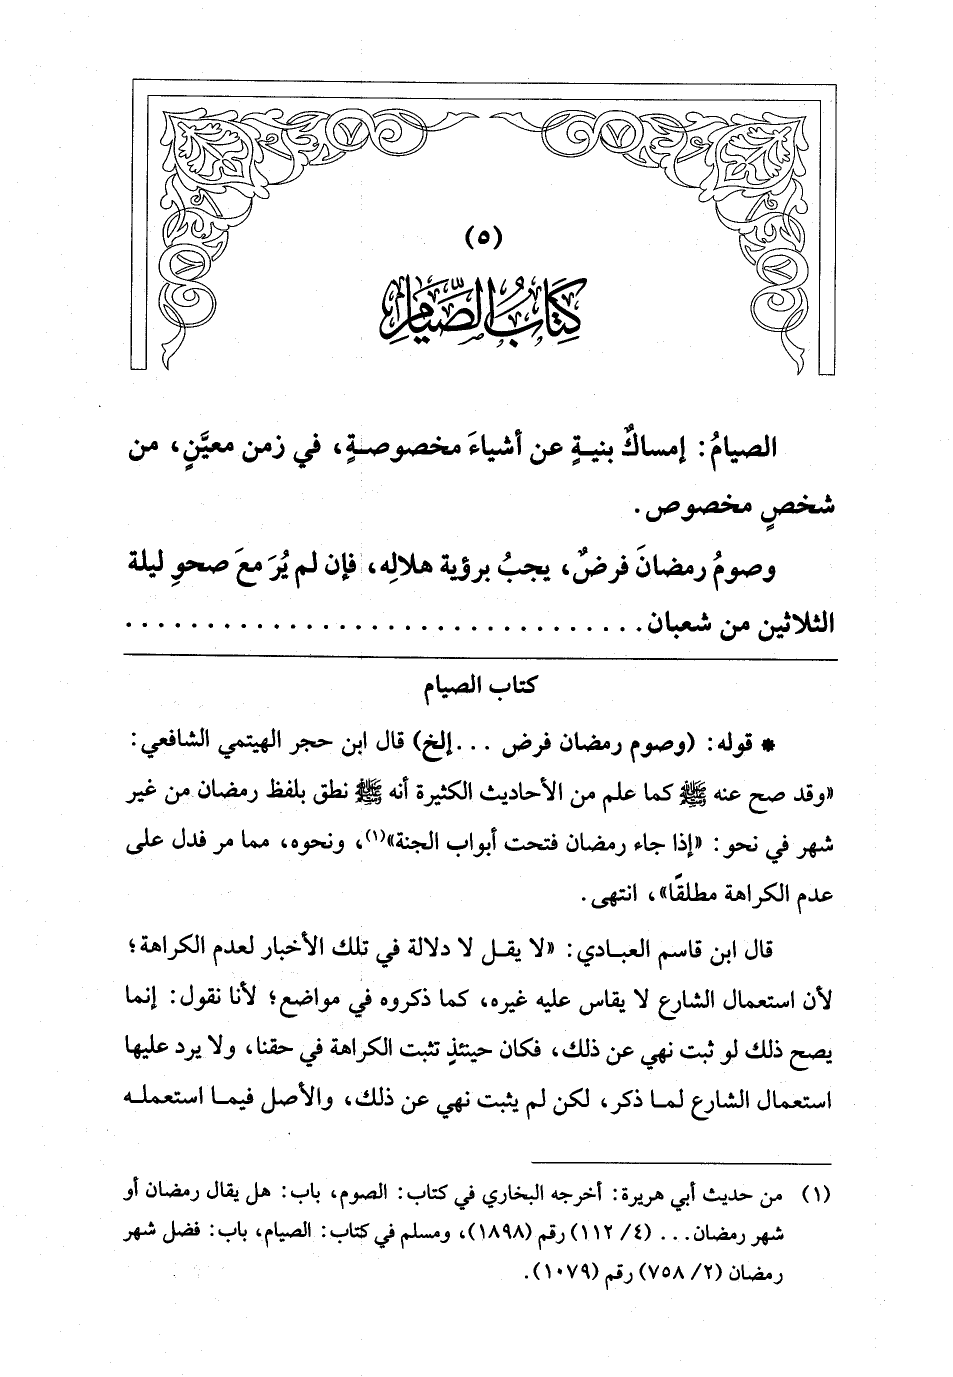 (٥)
كِتَابُ الصِّيَامِ
الصيامُ: إمساكٌ بنيةٍ عن أشياءَ مخصوصةٍ، في زمن معيَّنٍ، من
شخصٍ مخصوص.
وصومُ رمضانَ فرضٌ، يجبُ برؤية هلالِه، فإن لم يُرَ معَ صحوِ ليلة
الثلاثين من شعبان. . . . . . . . . . . . . . . . . . . . . . . . . . . . . . . .
كتاب الصيام
* قوله: (وصوم رمضان فرض ...إلخ) قال ابن حجر الهيتمي الشافعي:
«وقد صح عنه ﷺ كما علم من الأحاديث الكثيرة أنه ﷺ نطق بلفظ رمضان من غير
شهر في نحو: «إذا جاء رمضان فتحت أبواب الجنة»(١)، ونحوه، مما مر فدل على
عدم الكراهة مطلقًا»، انتهى.
قال ابن قاسم العبادي: «لا يقل لا دلالة في تلك الأخبار لعدم الكراهة؛
لأن استعمال الشارع لا يقاس عليه غيره، كما ذكروه في مواضع؛ لأنا نقول: إنما
يصح ذلك لو ثبت نهي عن ذلك، فكان حينئذٍ تثبت الكراهة في حقنا، ولا يرد عليها
استعمال الشارع لما ذكر، لكن لم يثبت نهي عن ذلك، والأصل فيما استعمله
(١) من حديث أبي هريرة: أخرجه البخاري في كتاب: الصوم، باب: هل يقال رمضان أو
شهر رمضان... (٤/ ١١٢) رقم (١٨٩٨)، ومسلم في كتاب: الصيام، باب: فضل شهر
رمضان (٢/ ٧٥٨) رقم (١٠٧٩).